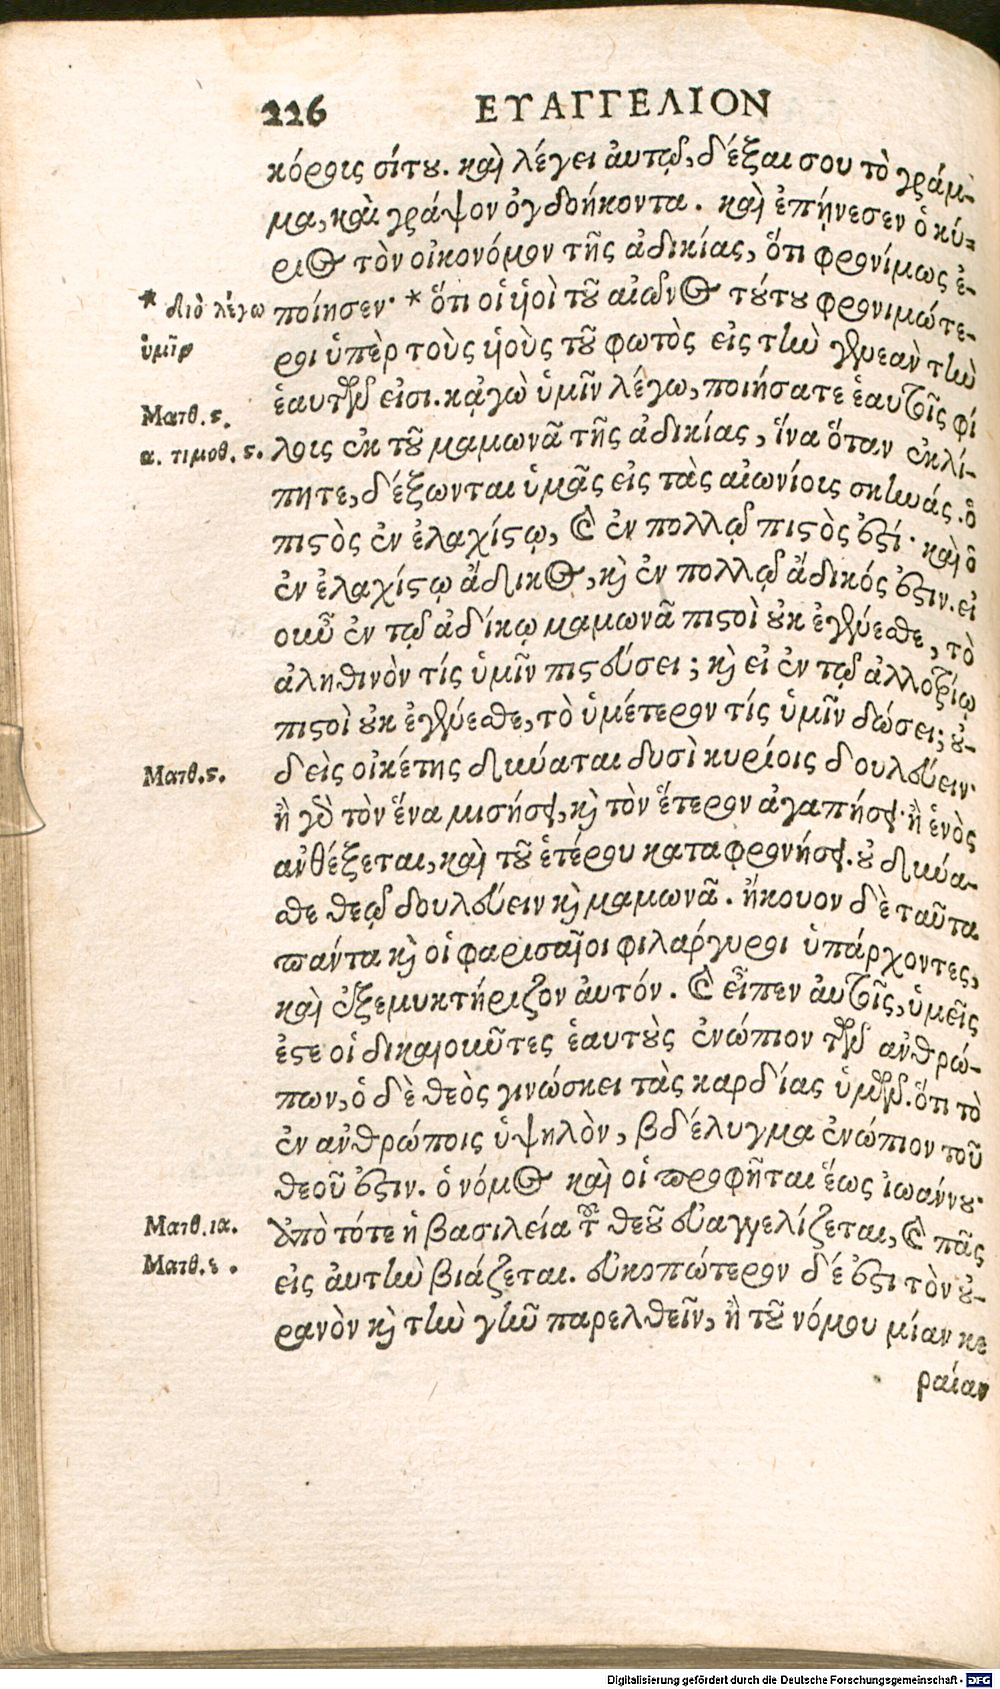 226 ΕΥΑΓΓΕΛΙΟΝ
κόρους σίτου. καὶ λέγει αὐτῷ, δέξαι σου τὸ γράμ-
μα, καὶ γράψον ὀγδοήκοντα. καὶ ἐπῄνεσεν ὁ κύ-
ριος τὸν οἰκονόμον τῆς ἀδικίας, ὅτι φρονίμως ἐ-
* διὸ λέγω
ὑμῖν
ποίησεν· * ὅτι οἱ υἱοὶ τοῦ αἰῶνος τούτου φρονιμώτε-
ροι ὑπὲρ τοὺς υἱοὺς τοῦ φωτὸς εἰς τὴν γενεὰν τὴν
ἑαυτῶν εἰσι. κᾀγὼ ὑμῖν λέγω, ποιήσατε ἑαυτοῖς φί
Ματθ. ς.
α. τιμοθ. ς.
λους ἐκ τοῦ μαμωνᾶ τῆς ἀδικίας, ἵνα ὅταν ἐκλί-
πητε, δέξωνται ὑμᾶς εἰς τὰς αἰωνίους σκηνάς. ὁ
πιστὸς ἐν ἐλαχίστῳ, καὶ ἐν πολλῷ πιστὸς ἐστί· καὶ ὁ
ἐν ἐλαχίστῳ ἄδικος, καὶ ἐν πολλῷ ἄδικός ἐστιν. εἰ
οὖν ἐν τῷ ἀδίκῳ μαμωνᾶ πιστοὶ οὐκ ἐγένεσθε, τὸ
ἀληθινὸν τίς ὑμῖν πιστεύσει; καὶ εἰ ἐν τῷ ἀλλοτρίῳ
πιστοὶ οὐκ ἐγένεσθε, τὸ ὑμέτερον τίς ὑμῖν δώσει; οὐ-
Ματθ. ς.
δεὶς οἰκέτης δύναται δυσὶ κυρίοις δουλεύειν·
ἢ γὰρ τὸν ἕνα μισήσει, καὶ τὸν ἕτερον ἀγαπήσει· ἢ ἑνὸς
ἀνθέξεται, καὶ τοῦ ἑτέρου καταφρονήσει. οὐ δύνα-
σθε θεῷ δουλεύειν καὶ μαμωνᾶ. ἤκουον δὲ ταῦτα
πάντα καὶ οἱ φαρισαῖοι φιλάργυροι ὑπάρχοντες,
καὶ ἐξεμυκτήριζον αὐτόν. καὶ εἶπεν αὐτοῖς, ὑμεῖς
ἐστε οἱ δικαιοῦντες ἑαυτοὺς ἐνώπιον τῶν ἀνθρώ-
πων, ὁ δὲ θεὸς γινώσκει τὰς καρδίας ὑμῶν. ὅτι τὸ
ἐν ἀνθρώποις ὑψηλὸν, βδέλυγμα ἐνώπιον τοῦ
θεοῦ ἐστιν. ὁ νόμος καὶ οἱ προφῆται ἕως ἰωάννου·
Ματθ. ια.
ἀπὸ τότε ἡ βασιλεία τοῦ θεοῦ εὐαγγελίζεται, καὶ πᾶς
Ματθ. ε.
εἰς αὐτὴν βιάζεται. εὐκοπώτερον δέ ἐστι τὸν οὐ-
ρανὸν καὶ τὴν γῆν παρελθεῖν, ἢ τοῦ νόμου μίαν κε
ραίαν
Digitalisierung gefördert durch die Deutsche Forschungsgemeinschaft - DFG